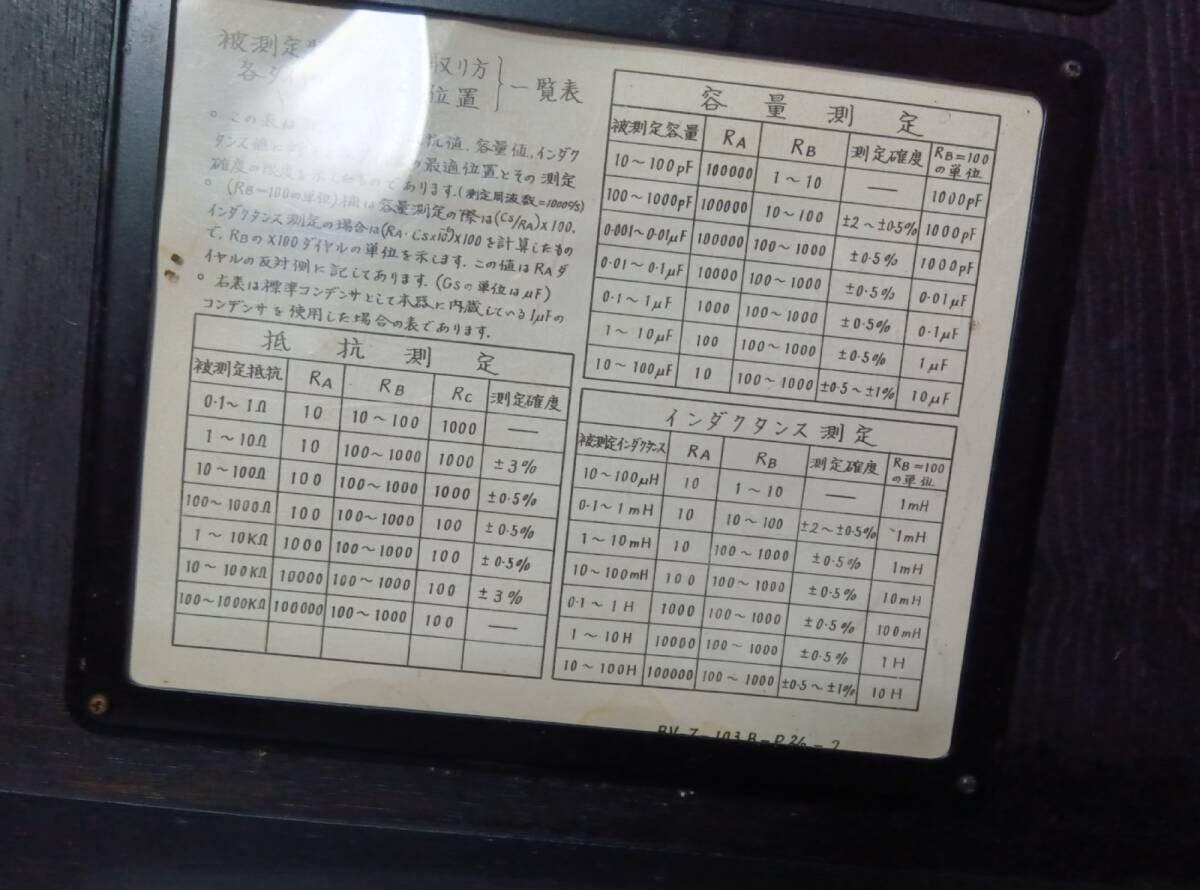 被測定
各ダイ 取り方
位置 一覧表
° この表は 抗値、容量値、インダク
タンス値に の最適位置とその測定
確度の限度を示したものであります。(測定周波数=1000c/s)
° (RB=100の単位)欄は容量測定の際は(Cs/RA)×100,
インダクタンス測定の場合は(RA・Cs×10⁻⁶)×100を計算したもの
で、RBの×100ダイヤルの単位を示します。この値はRAダ
イヤルの反対側に記してあります。(CSの単位はμF)
° 右表は標準コンデンサとして本器に内蔵している1μFの
コンデンサを使用した場合の表であります.
抵抗測定
被測定抵抗 RA RB RC 測定確度
0.1〜1Ω 10 10〜100 1000 —
1〜10Ω 10 100〜1000 1000 ±3%
10〜100Ω 100 100〜1000 1000 ±0.5%
100〜1000Ω 100 100〜1000 100 ±0.5%
1〜10KΩ 1000 100〜1000 100 ±0.5%
10〜100KΩ 10000 100〜1000 100 ±3%
100〜1000KΩ 100000 100〜1000 100 —
容量測定
被測定容量 RA RB 測定確度 RB=100の単位
10〜100pF 100000 1〜10 — 1000pF
100〜1000pF 100000 10〜100 ±2〜±0.5% 1000pF
0.001〜0.01μF 100000 100〜1000 ±0.5% 1000pF
0.01〜0.1μF 10000 100〜1000 ±0.5% 0.01μF
0.1〜1μF 1000 100〜1000 ±0.5% 0.1μF
1〜10μF 100 100〜1000 ±0.5% 1μF
10〜100μF 10 100〜1000 ±0.5〜±1% 10μF
インダクタンス測定
被測定インダクタンス RA RB 測定確度 RB=100の単位
10〜100μH 10 1〜10 — 1mH
0.1〜1mH 10 10〜100 ±2〜±0.5% 1mH
1〜10mH 10 100〜1000 ±0.5% 1mH
10〜100mH 100 100〜1000 ±0.5% 10mH
0.1〜1H 1000 100〜1000 ±0.5% 100mH
1〜10H 10000 100〜1000 ±0.5% 1H
10〜100H 100000 100〜1000 ±0.5〜±1% 10H